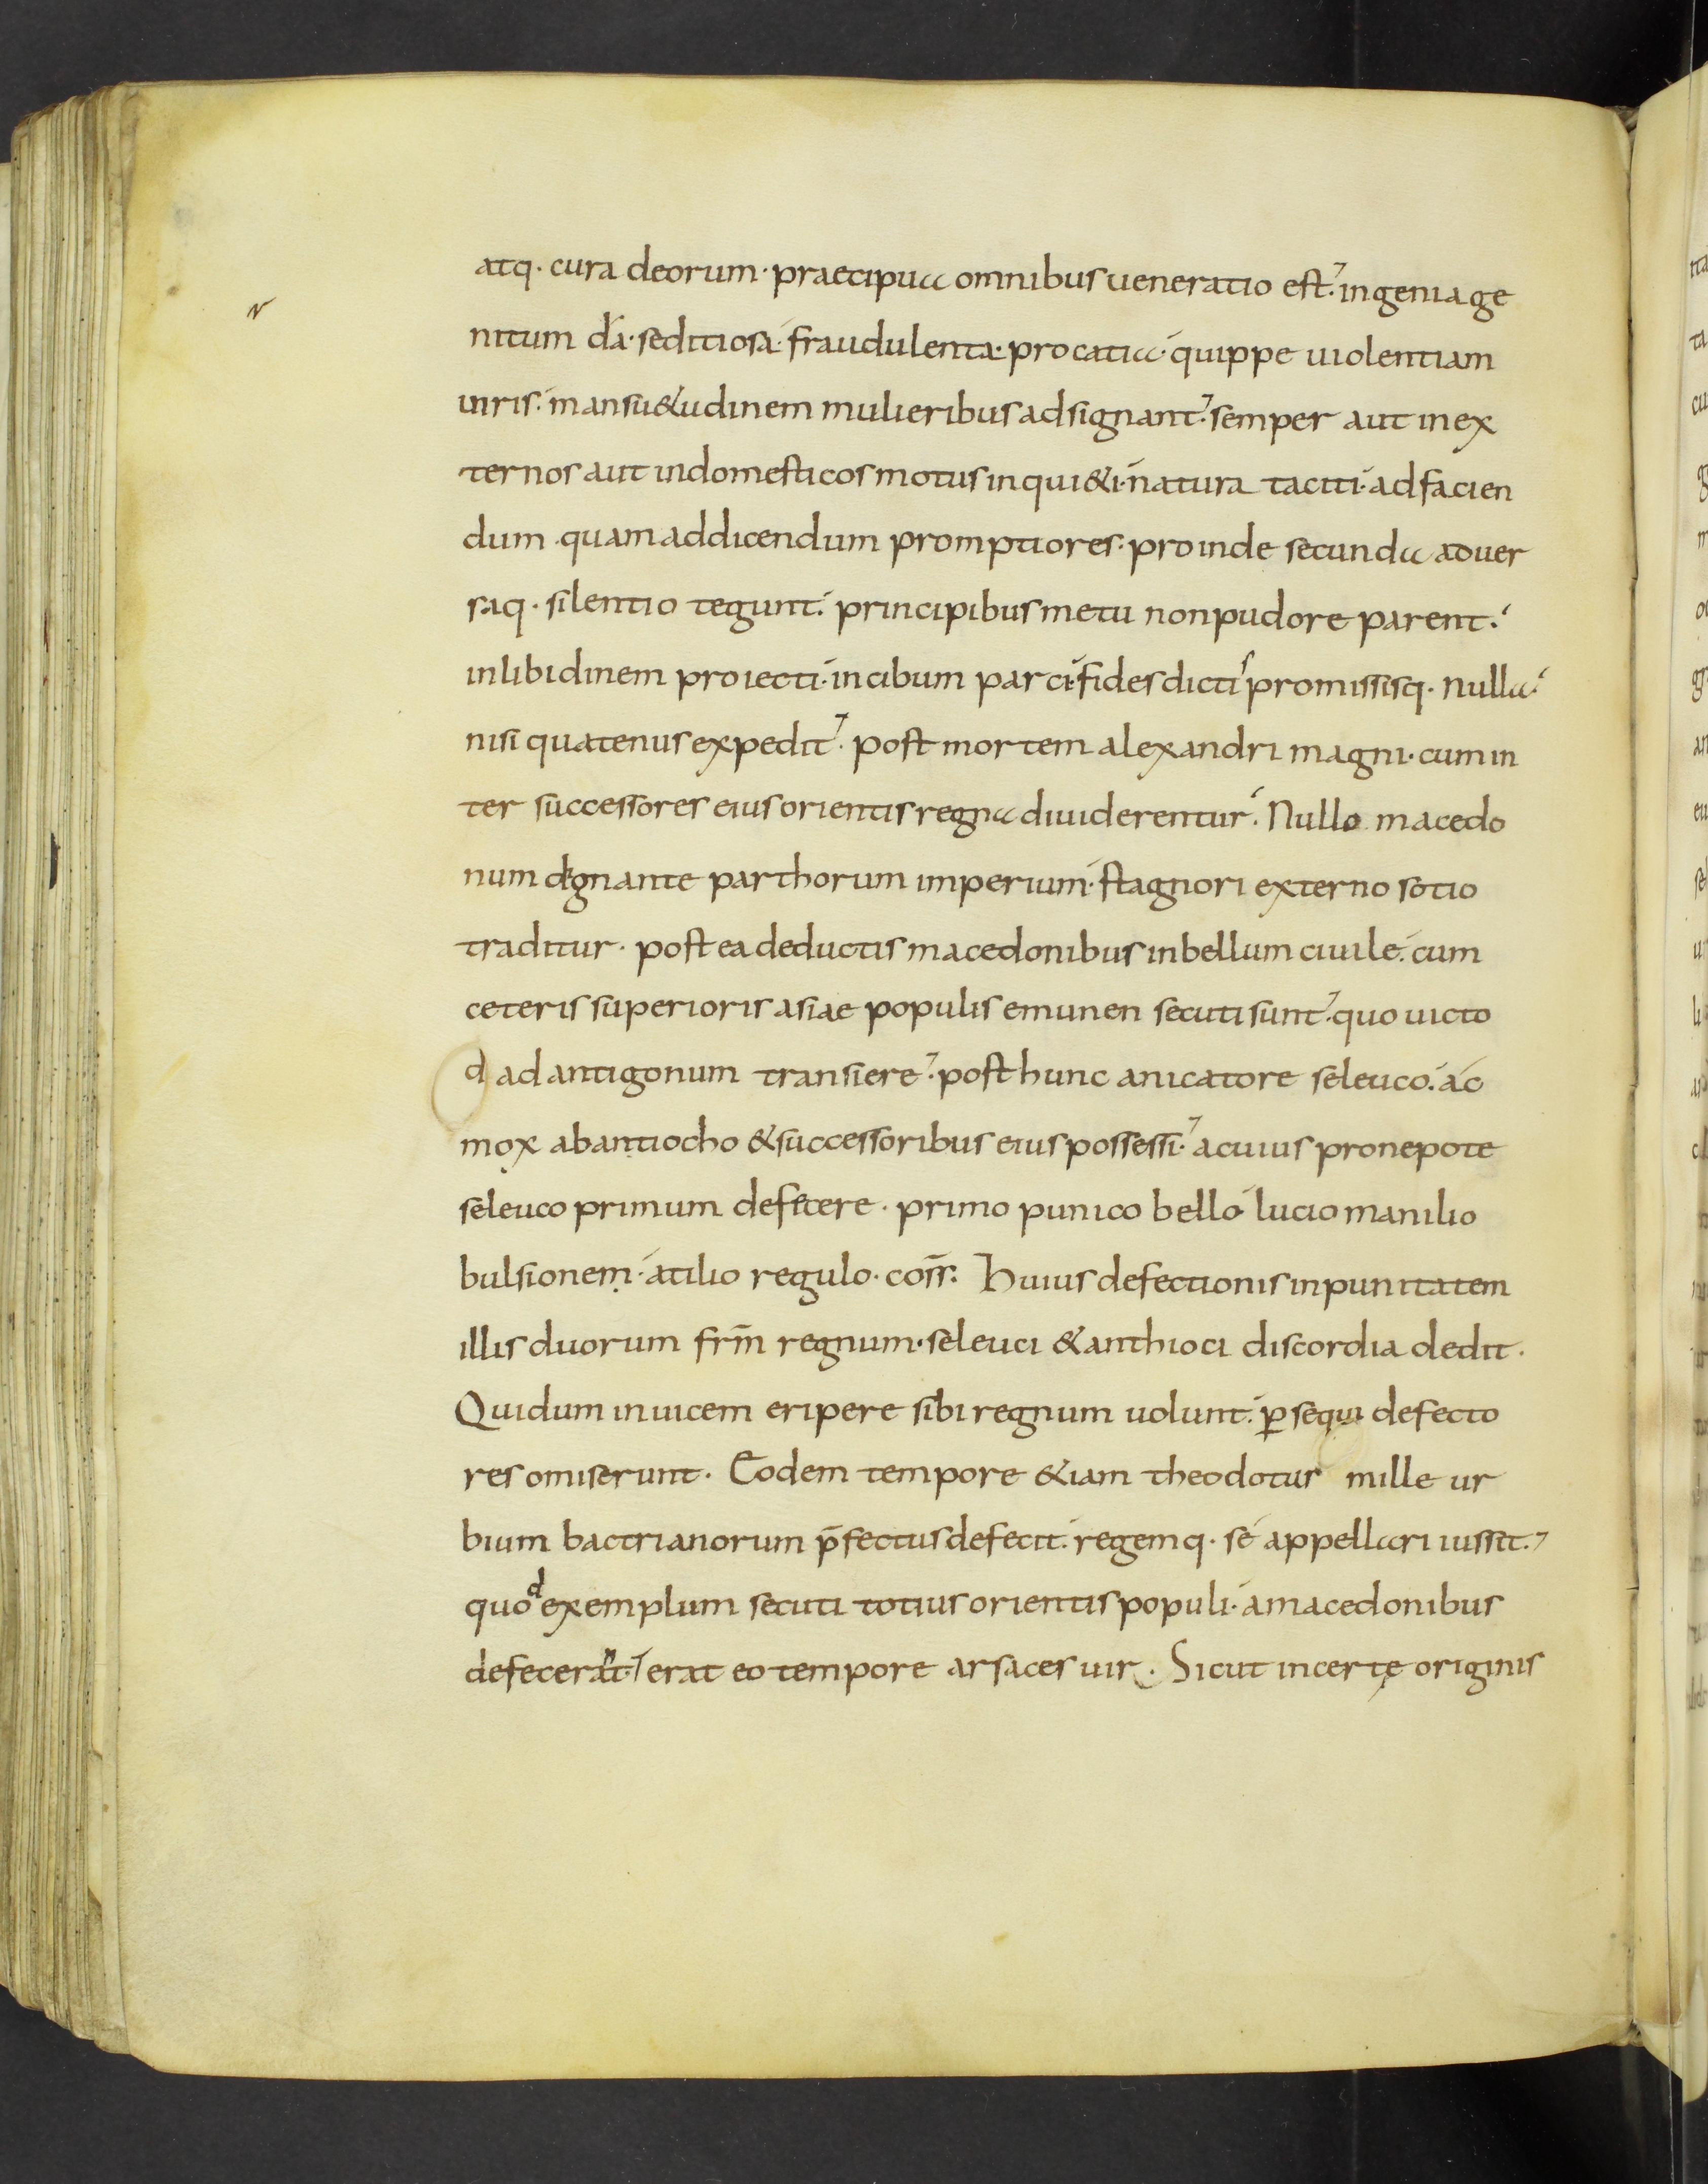 atq· cura deorum· praecipua omnibus ueneratio est· ingenia ge
nitum dr̄a· seditiosa· fraudulenta· procatia· quippe uiolentiam
uiris· mansu&udinem mulieribus adsignant· semper aut in ex
ternos aut in domesticos motus inqui&i· natura taciti· ad facien
dum quam ad dicendum promptiores· proinde secunda aduer
saq· silentio tegunt· principibus metu non pudore parent·
in libidinem proiecti· in cibum parci· fides dictis promissisq· nulla·
nisi quatenus expedit· post mortem alexandri magni· cum in
ter successores eius orientis regna diuiderentur· Nullo macedo
num dignante parthorum imperium· stagnori externo sotio
traditur· post ea deductis macedonibus in bellum ciuile· cum
ceteris superioris asiae populis emunen secuti sunt· quo uicto
d ad antigonum transiere· post hunc a nicatore seleuco· ac
mox ab antiocho & successoribus eius possessi· a cuius pronepote
seleuco primum defecere· primo punico bello lucio manilio
bulsionem· atilio regulo· cos̄s· Huius defectionis inpunitatem
illis duorum frm̄ regnum· seleuci & anthioci discordia dedit·
Qui dum inuicem eripere sibi regnum uolunt· ꝑsequi defecto
res omiserunt· Eodem tempore &iam theodotus mille ur
bium bactrianorum p̄fectus defecit· regemq· se appellari iussit·
quod exemplum secuti totius orientis populi· a macedonibus
defecerant· erat eo tempore arsaces uir· Sicut incertę originis